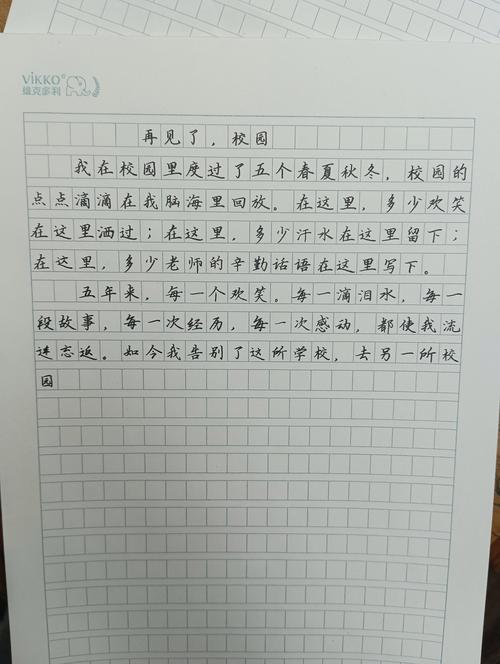 ViKKO®
维克多利
再见了，校园
我在校园里度过了五个春夏秋冬，校园的
点点滴滴在我脑海里回放。在这里，多少欢笑
在这里洒过；在这里，多少汗水在这里留下；
在这里，多少老师的辛勤话语在这里写下。
五年来，每一个欢笑。每一滴泪水，每一
段故事，每一次经历，每一次感动，都使我流
连忘返。如今我告别了这所学校，去另一所校
园